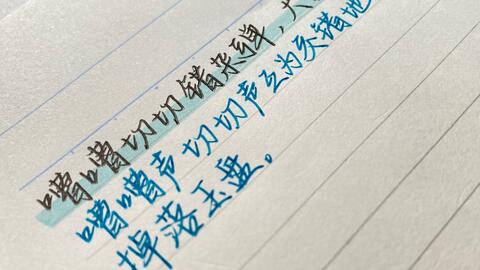 嘈嘈切切错杂弹,大
嘈嘈声切切声互为交错地
掉落玉盘。